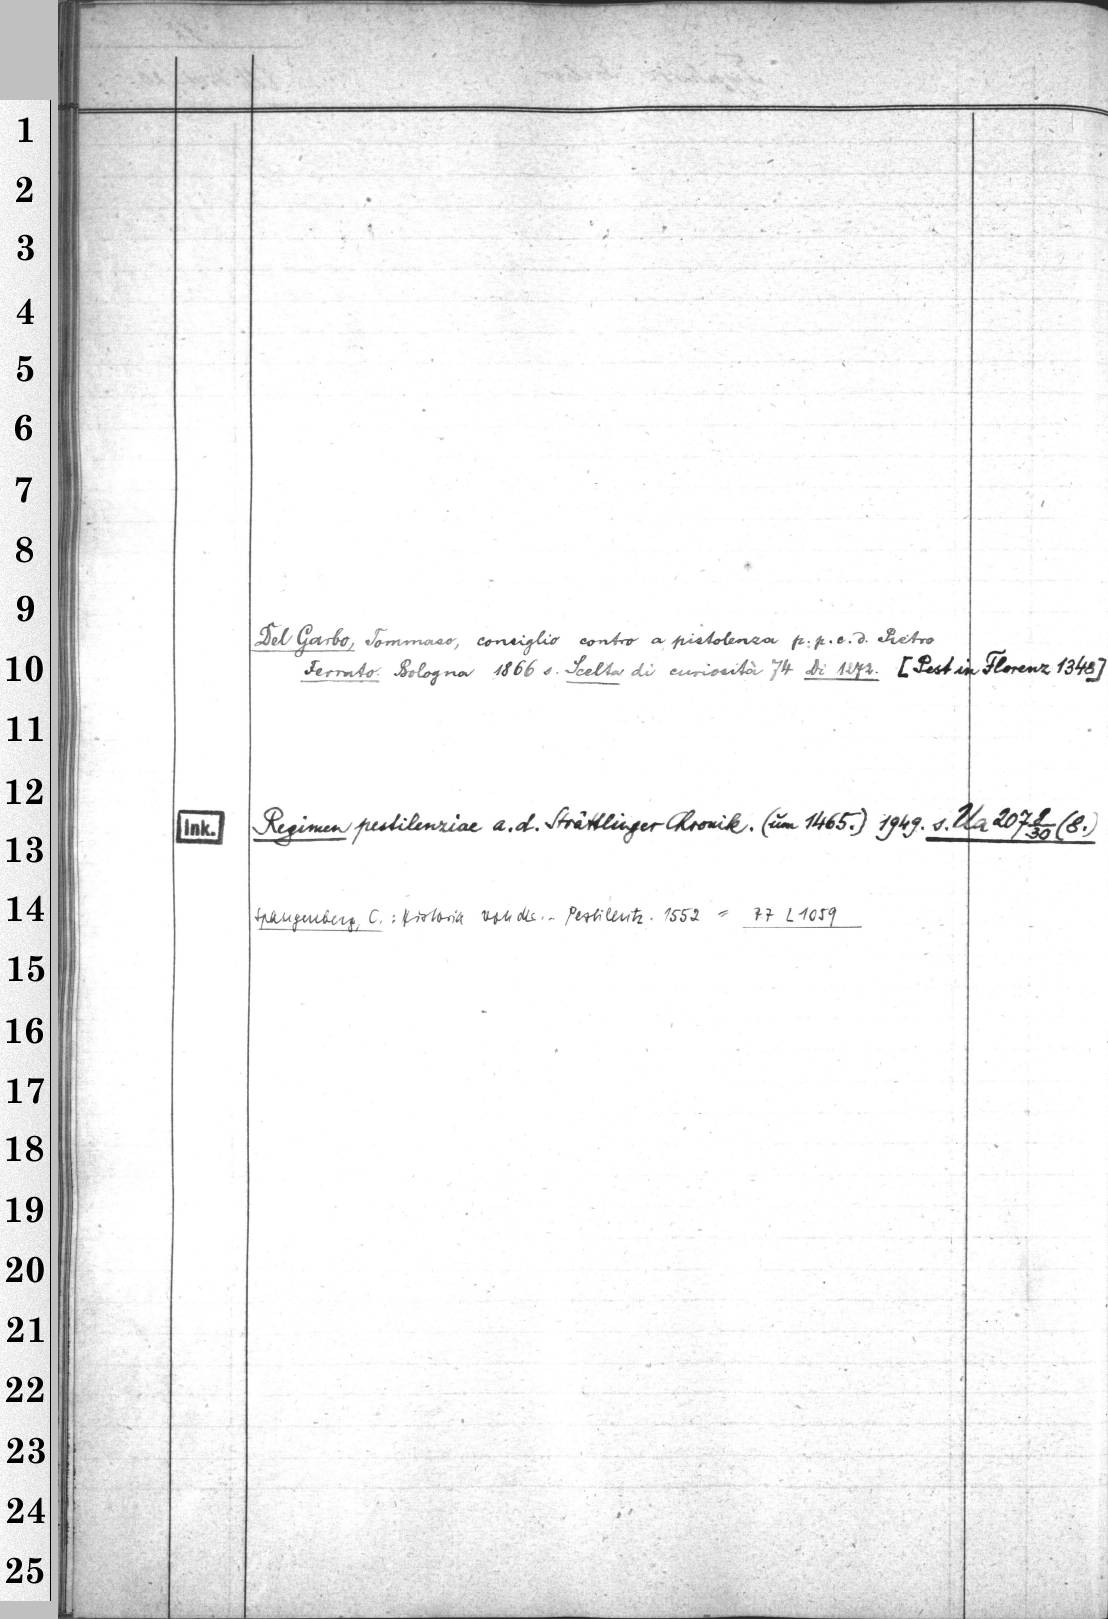 1
2
3
4
5
6
7
8
9
Del Garbo, Tommaso, consiglio contro a pistolenza p. p. c. d. Pietro
10
Ferrato. Bologna 1866 s. Scelta di curiosità 74 Di 1272. [Pest in Florenz 1348]
11
12
Ink. Regimen pestilenziae a. d. Strättlinger Chronik. (um 1465.) 1949. s. Ua 2078/30 (8.)
13
14
Spangenberg, C.: Historia von der .. Pestilentz. 1552 = 77 L 1059
15
16
17
18
19
20
21
22
23
24
25